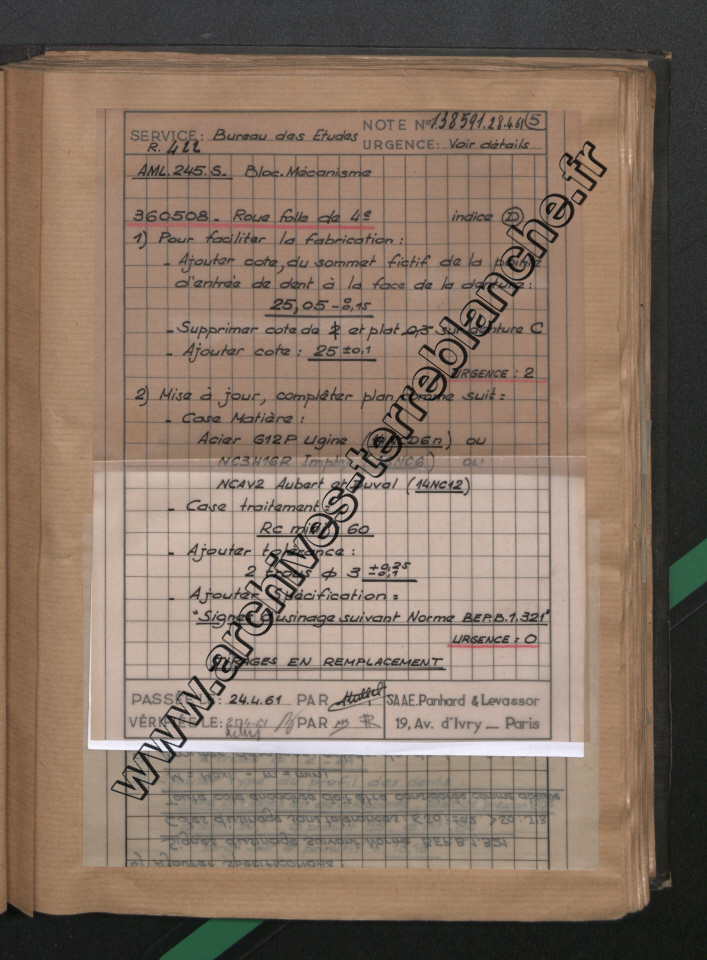 SERVICE: Bureau des Etudes
NOTE N° 138591.28.4.61 5
R. 422
URGENCE: Voir détails
AML.245.S. Bloc.Mécanisme
360508 - Roue folle de 4e indice D
1) Pour faciliter la fabrication :
- Ajouter cote, du sommet fictif de la
d'entrée de dent à la face de la denture :
25,05 -0 -0,15
- Supprimer cote de 2 et plat 0,5 sur denture C
- Ajouter cote : 25 ±0,1
URGENCE : 2
2) Mise à jour, compléter plan comme suit :
- Case Matière :
Acier G12P Ugine ou
ou
NCAV2 Aubert et Duval (14NC12)
- Case traitement :
Rc mini 60
- Ajouter tolérance :
2 trous ϕ 3 +0,25 -0,1
- Ajouter Spécification :
"Signes d'usinage suivant Norme BEP.B.1.321"
URGENCE : 0
TIRAGES EN REMPLACEMENT
PASSÉE LE : 24.4.61 PAR
SAAE. Panhard & Levassor
VÉRIFIÉE LE: PAR
19, Av. d'Ivry _ Paris
M = Maxi - m = mini
Toute cote encadrée doit être considérée comme
Cotes d'usinage sans tolérances
Signes d'usinage suivant Norme BEP.B.1.321
4) Ajouter spécifications :
www.archives-terreblanche.fr